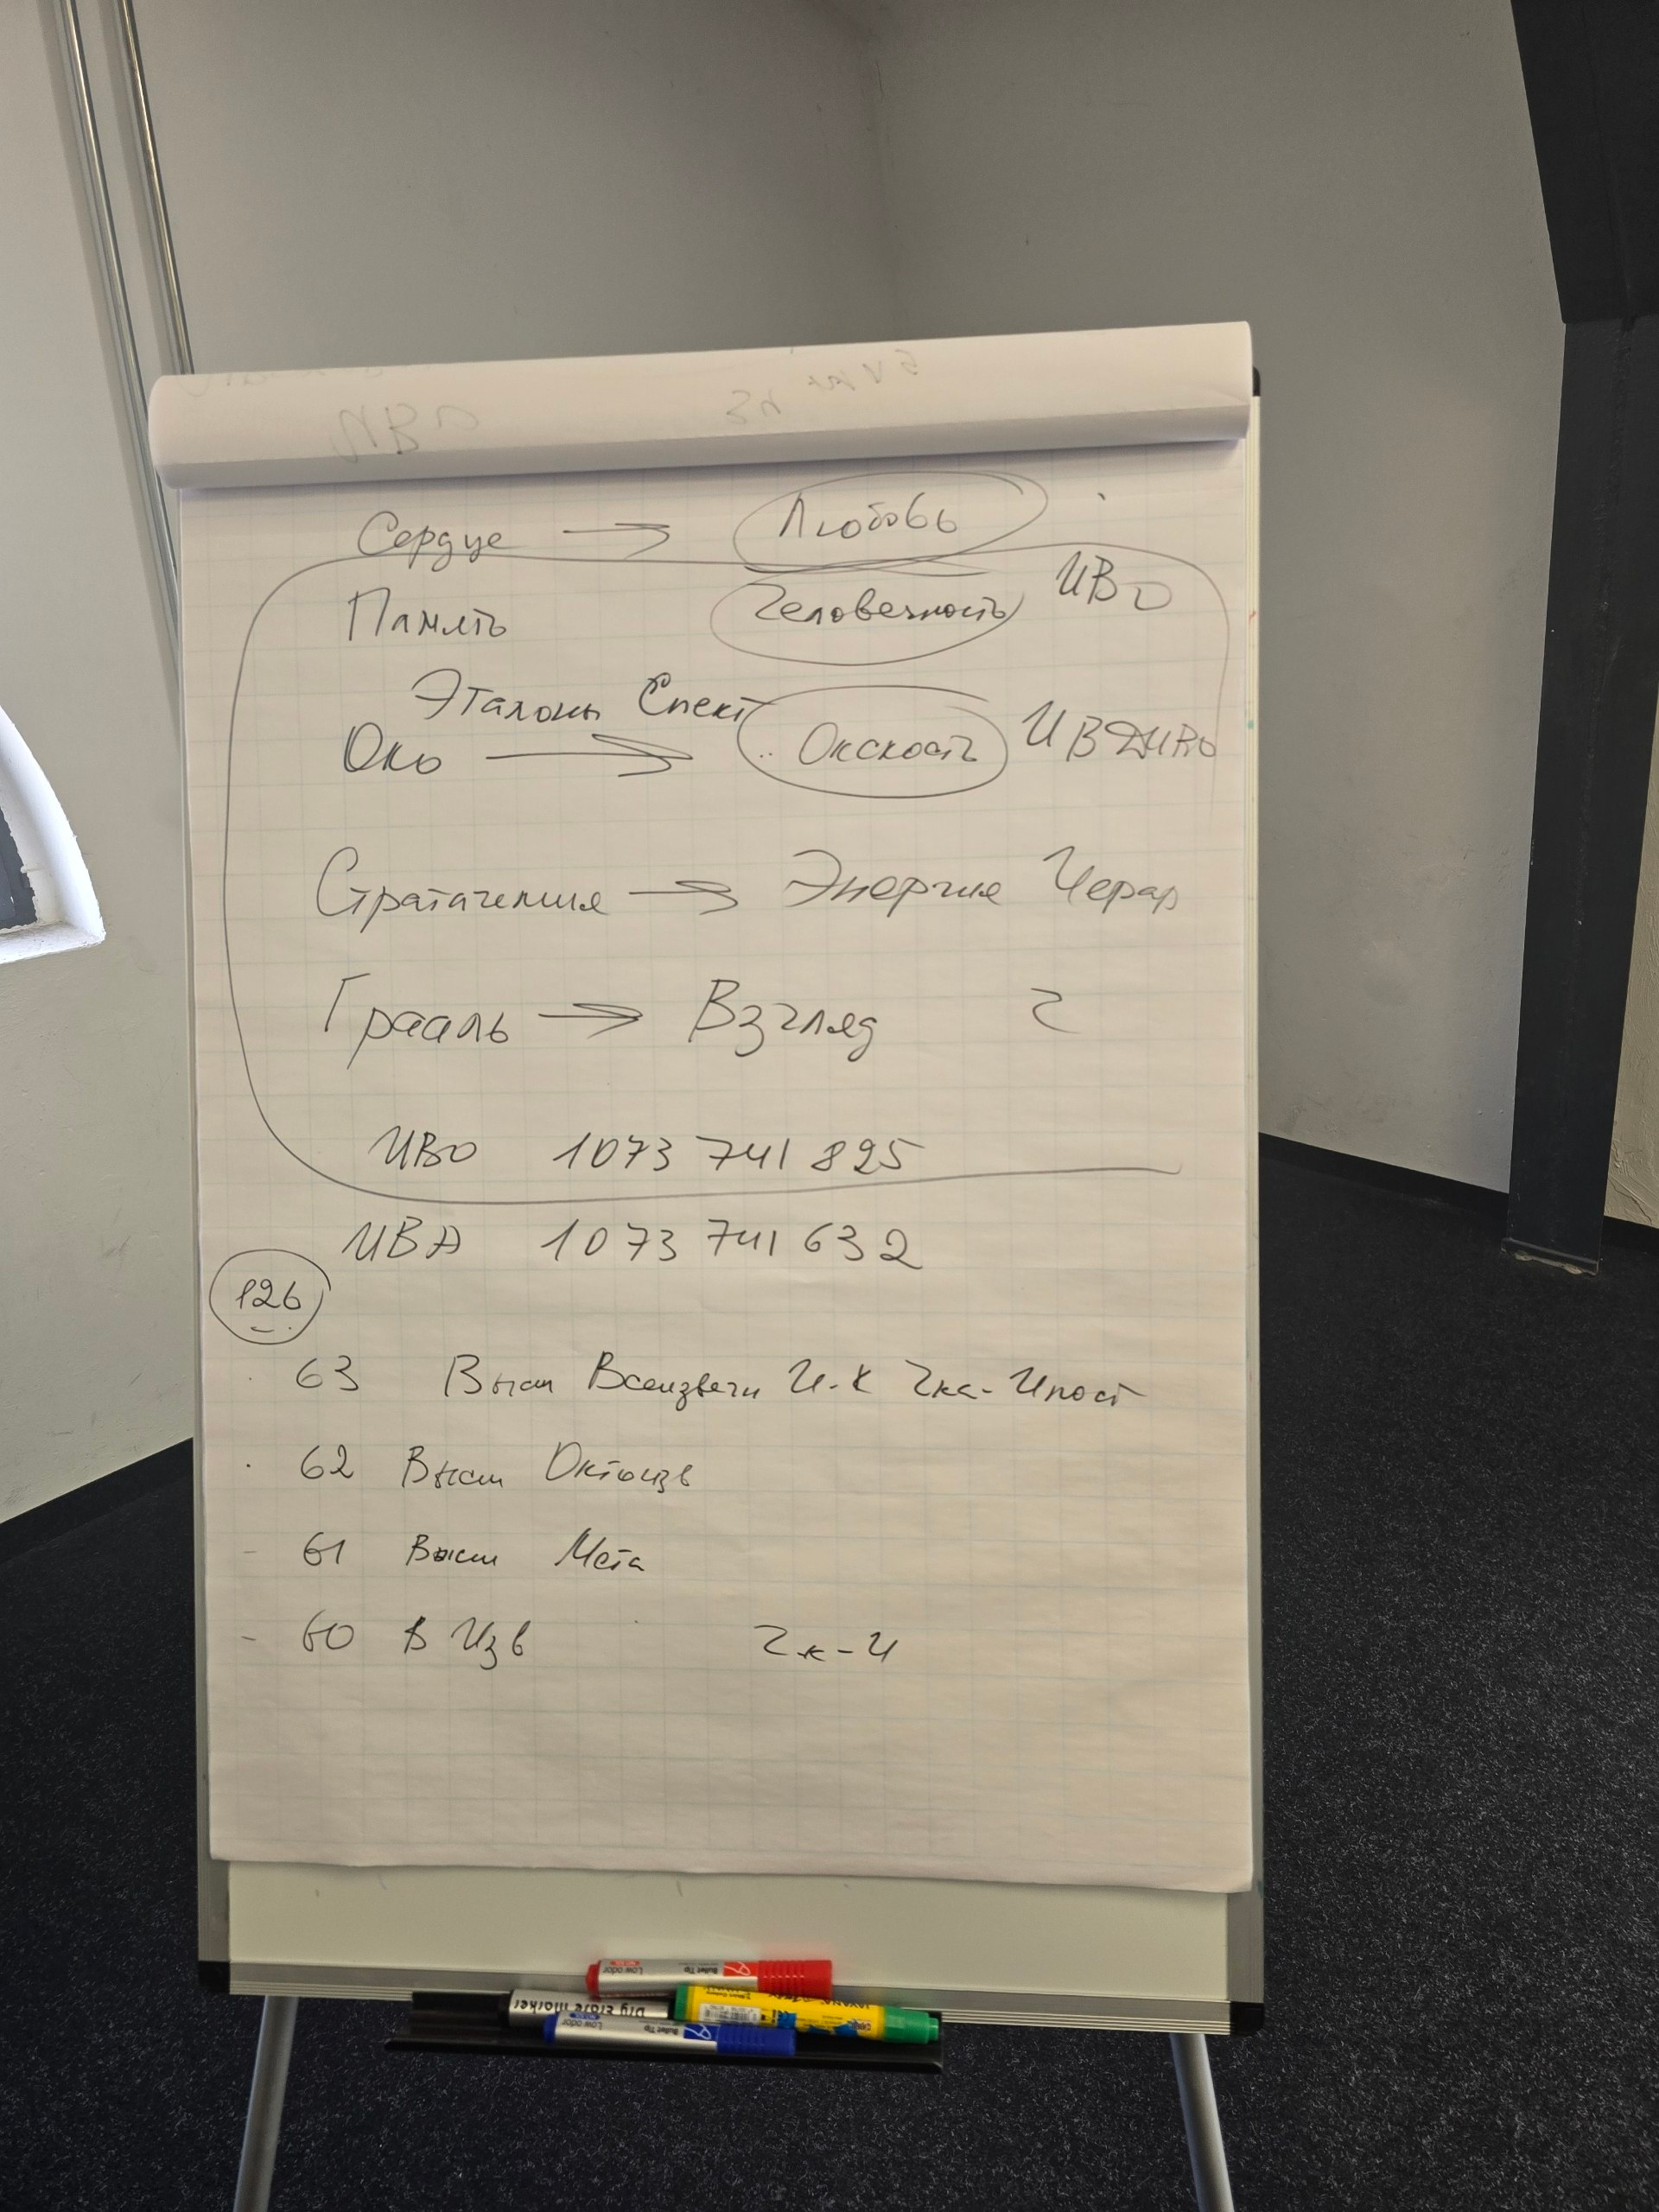 Сердце → Любовь
Память Человечность ИВО
Эталоны Спект
Око → Окскость ИВДИВО
Стратагемия → Энергия Иерар
Грааль → Взгляд
ИВО 1073 741 825
ИВА 1073 741 632
126
63 Высш Всеизвечн И-К Чкс-Ипост
62 Высш Октоизв
61 Высш Мета
60 В Изв Чк-И
Low odor Bullet Tip
Dry Erase marker
Low odor Bullet Tip